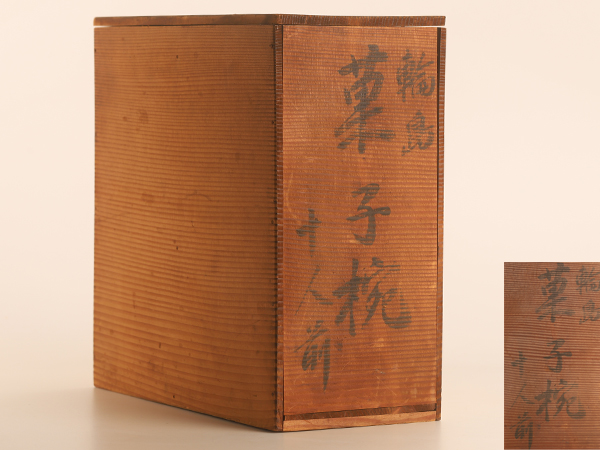 輪島
菓子椀
十人前
輪島
菓子椀
十人前